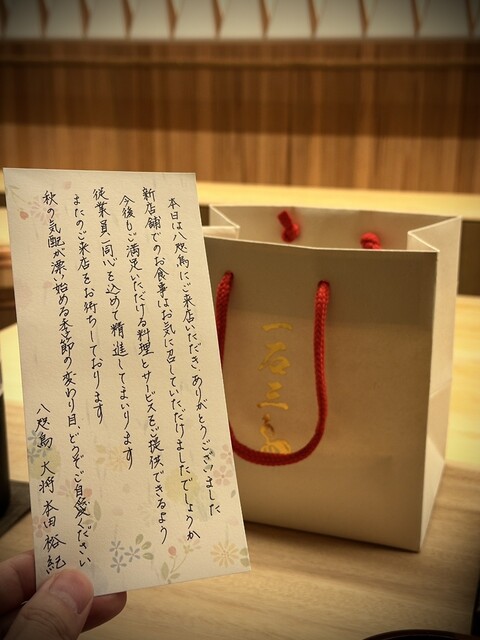 本日は八咫烏にご来店いただき、ありがとうございました
新店舗でのお食事はお気に召していただけましたでしょうか
今後もご満足いただける料理とサービスをご提供できるよう
従業員一同心を込めて精進してまいります
またのご来店をお待ちしております
秋の気配が漂い始める季節の変わり目、どうぞご自愛ください
八咫烏 大将 本田 裕紀
一石三鳥